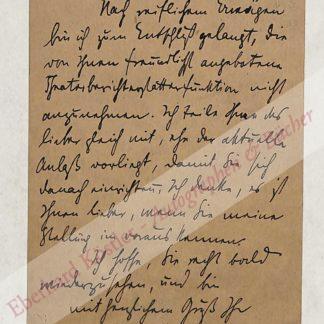 Nach reiflichem Erwägen
bin ich zum Entschluß gelangt, die
von Ihnen freundlichst angebotene
Theaterberichterstatterfunktion nicht
anzunehmen. Ich teile Ihnen das
lieber gleich mit, ehe der aktuelle
Anlaß vorliegt, damit Sie sich
danach einrichten. Ich denke, es ist
Ihnen lieber, wenn Sie meine
Stellung im voraus kennen.
Ich hoffe, Sie recht bald
wiederzusehen, und bin
mit herzlichem Gruß Ihr
Eberhard Köstler - Autographen & Bücher